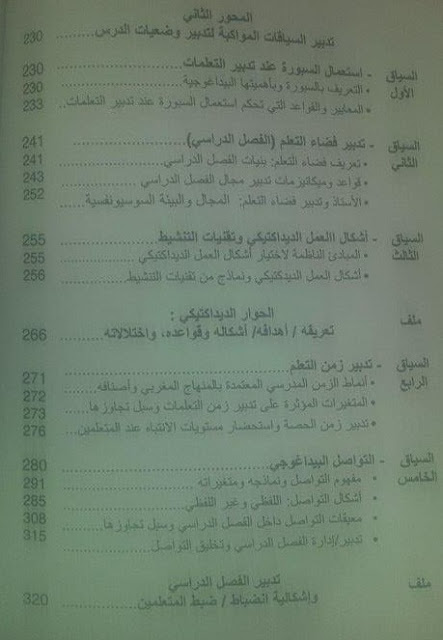 المحور الثاني
تدبير السياقات المواكبة لتدبير وضعيات الدرس.......... 230
السياق الأول - استعمال السبورة عند تدبير التعلمات.......... 230
• التعريف بالسبورة وبأهميتها البيداغوجية.......... 230
• المعايير والقواعد التي تحكم استعمال السبورة عند تدبير التعلمات.. 233
السياق الثاني - تدبير فضاء التعلم (الفصل الدراسي).......... 241
• تعريف فضاء التعلم: بنيات الفصل الدراسي.......... 241
• قواعد وميكانيزمات تدبير مجال الفصل الدراسي .......... 243
• الأستاذ وتدبير فضاء التعلم: المجال والبيئة السوسيونفسية.... 252
السياق الثالث - أشكال االعمل الديداكتيكي وتقنيات التنشيط.......... 255
• المبادئ الناظمة لاختيار أشكال العمل الديداكتيكي.......... 255
• أشكال العمل الديدكتيكي ونماذج من تقنيات التنشيط.......... 256
ملف الحوار الديداكتيكي :
تعريفه / أهدافه/ أشكاله وقواعده، واختلالاته.......... 266
السياق الرابع - تدبير زمن التعلم.......... 271
• أنماط الزمن المدرسي المعتمدة بالمنهاج المغربي وأصنافه.......... 272
• المتغيرات المؤثرة على تدبير زمن التعلمات وسبل تجاوزها.... 273
• تدبير زمن الحصة واستحضار مستويات الانتباه عند المتعلمين.... 276
السياق الخامس - التواصل البيداغوجي.......... 280
• مفهوم التواصل ونماذجه ومتغيراته .......... 291
• أشكال التواصل: اللفظي وغير اللفظي.......... 285
• معيقات التواصل داخل الفصل الدراسي وسبل تجاوزها.......... 308
• تدبير/إدارة الفصل الدراسي وتخليق التواصل.......... 315
ملف تدبير الفصل الدراسي
وإشكالية انضباط / ضبط المتعلمين.......... 320